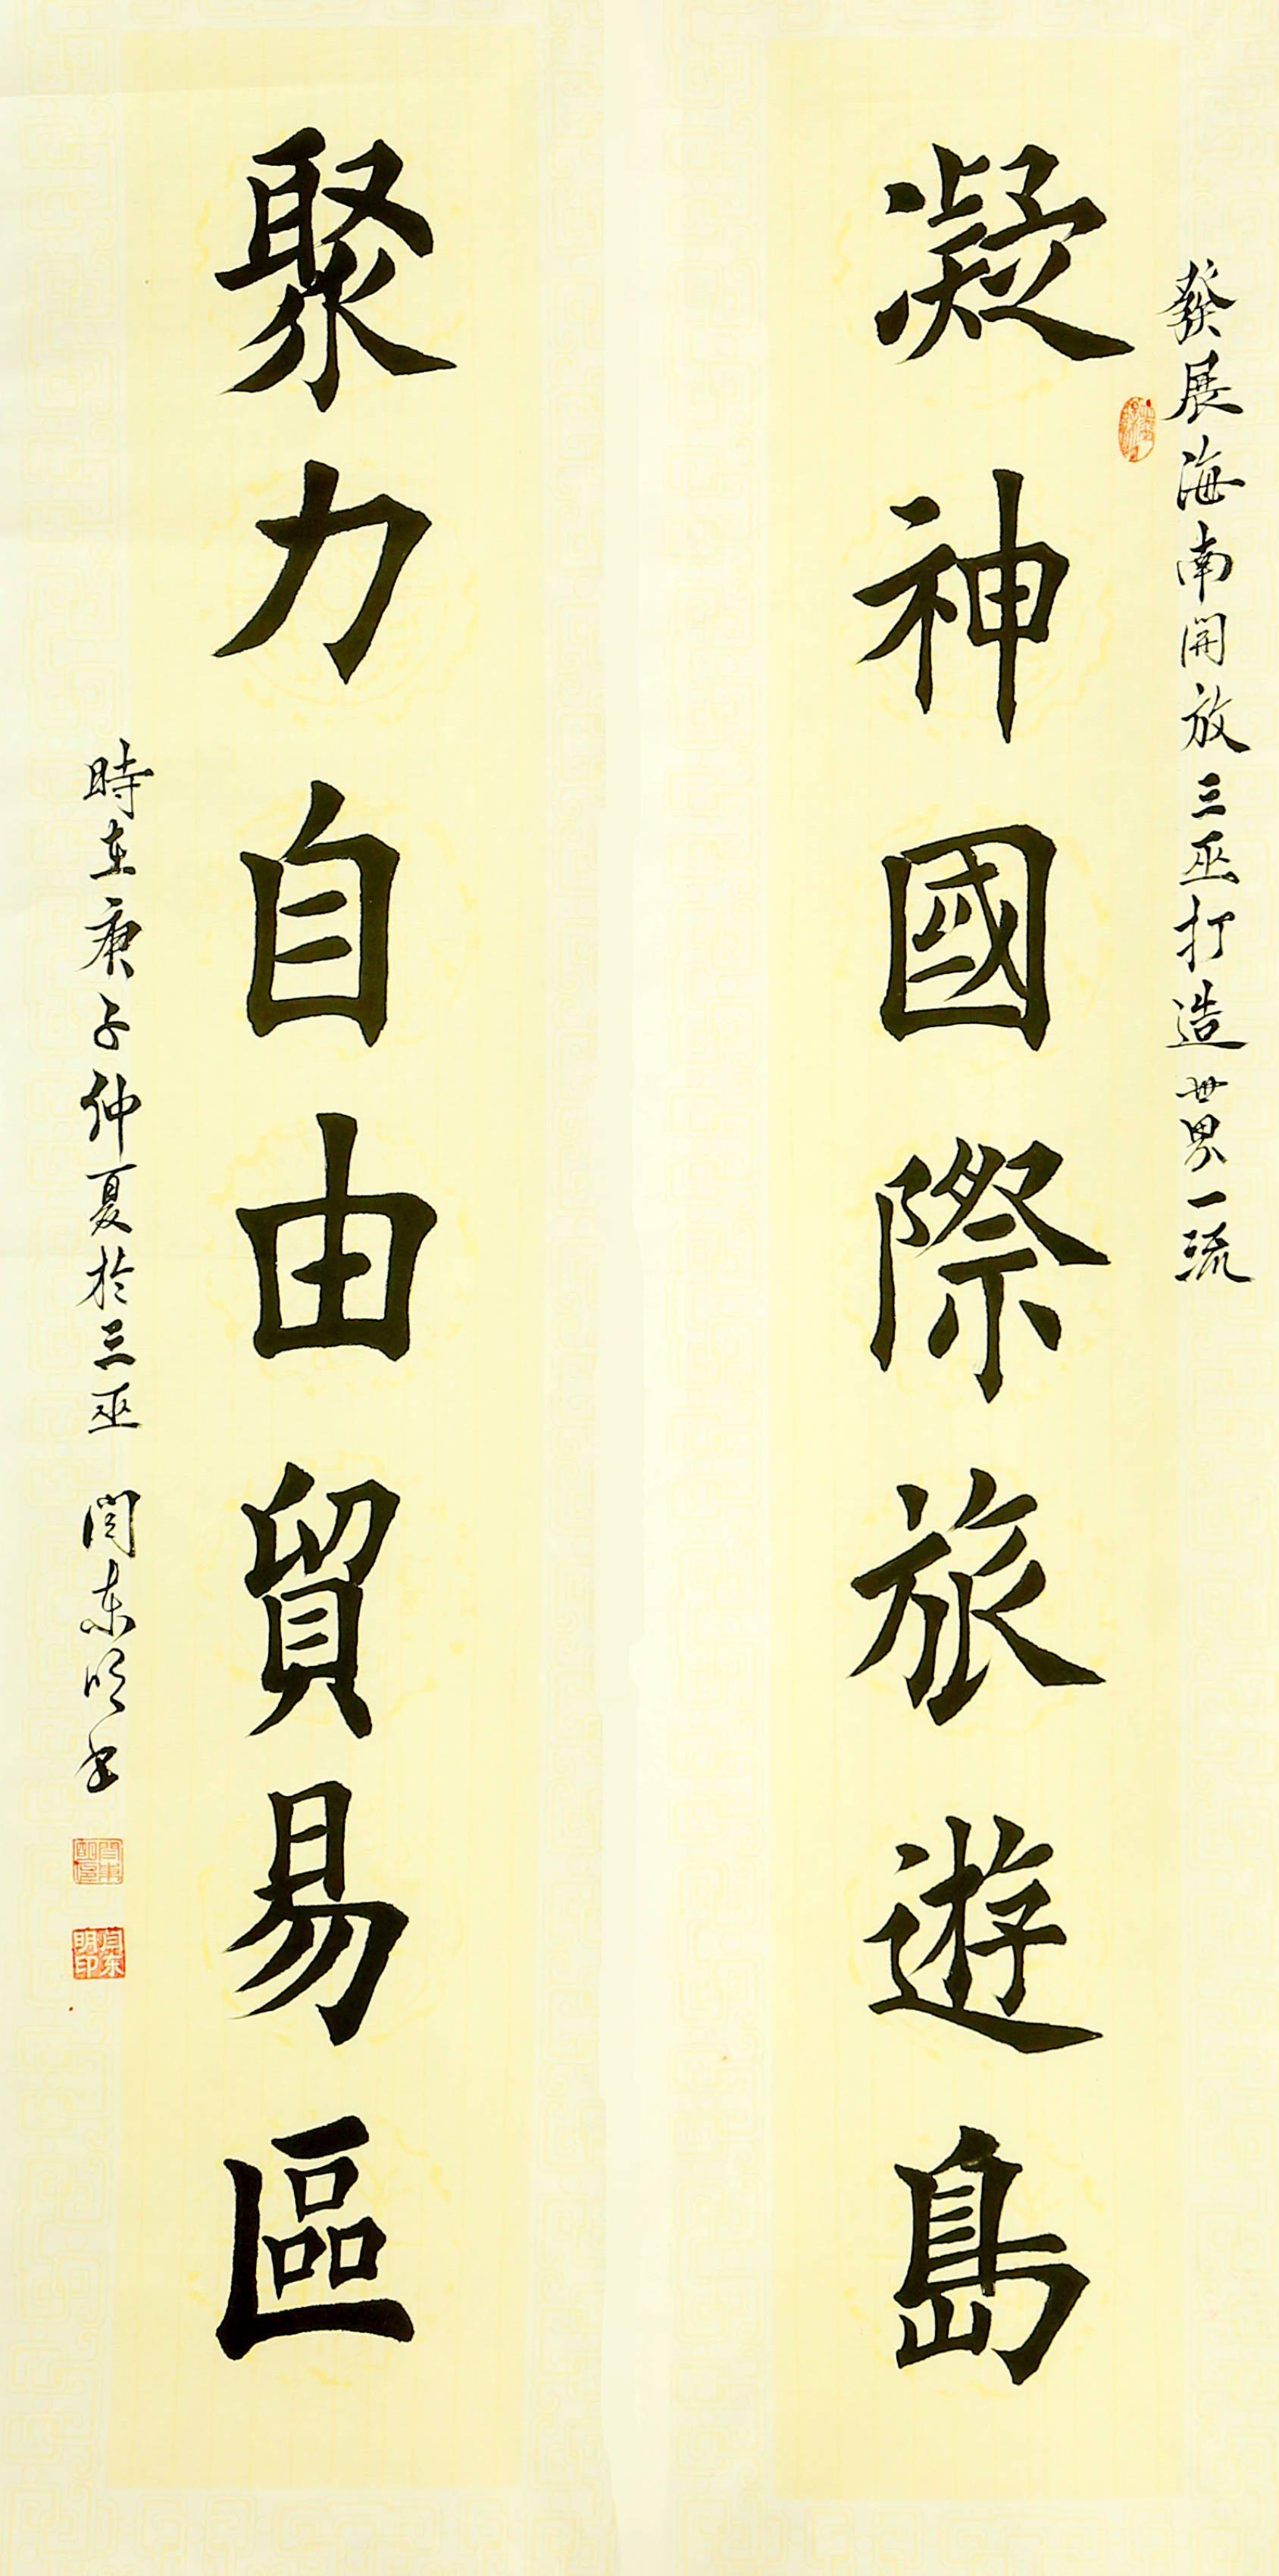 發展海南開放三亚打造世界一流
凝神國際旅遊島
聚力自由貿易區
時在庚子仲夏於三亚 闫东明书